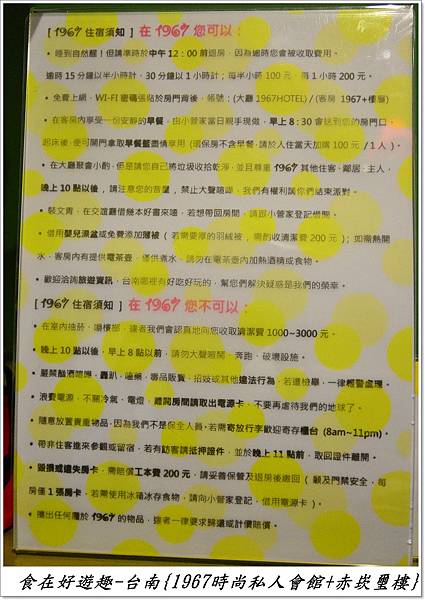 [ 1967 住宿須知 ] 在 1967 您可以：
• 睡到自然醒！但請準時於中午 12：00 前退房，因為逾時您會被收取費用。
逾時 15 分鐘以半小時計，30 分鐘以 1 小時計；每半小時 100 元，每 1 小時 200 元。
• 免費上網，WI-FI 密碼張貼於房門背後，帳號：(大廳 1967HOTEL) / (客房 1967+樓層)
• 在客房內享受一份安靜的早餐，由小管家當日親手現做，早上 8：30 會送到您的房門口，
起床後，便可開門拿取早餐籃盡情享用 (環保房不含早餐，請於入住當天加購 100 元 / 1 人)。
• 在大廳聚會小酌，但是請您自己將垃圾收拾乾淨，並且尊重 1967 其他住客、鄰居、主人，
晚上 10 點以後，請注意您的音量，禁止大聲喧嘩，我們有權利請你們結束派對。
• 裝文青，在交誼廳借幾本好書來嗑，若想帶回房間，請跟小管家登記借閱。
• 借用嬰兒澡盆或免費添加薄被 ( 若需要厚的羽絨被，需酌收清潔費 200 元 )；如需熱開
水，客房內有提供電茶壺，僅供煮水，請勿在電茶壺內加熱酒精或食物。
• 歡迎洽詢旅遊資訊，台南哪裡有好吃好玩的，幫您們解決疑惑是我們的榮幸。
[ 1967 住宿須知 ] 在 1967 您不可以：
• 在室內抽菸、嚼檳榔，違者我們會認真地向您收取清潔費 1000~3000 元。
• 晚上 10 點以後，早上 8 點以前，請勿大聲喧鬧、奔跑、破壞設施。
• 嚴禁酗酒喧嘩、轟趴、嗑藥、毒品販賣、招妓或其他違法行為，若遭檢舉，一律報警處理。
• 浪費電源，不關冷氣、電燈，離開房間請取出電源卡，不要再虐待我們的地球了。
• 隨意放置貴重物品，因為我們不是保全人員，若需寄放行李歡迎寄存櫃台 (8am~11pm)。
• 帶非住客進來參觀或留宿，若有訪客請抵押證件，並於晚上 11 點前，取回證件離開。
• 毀損或遺失房卡，需賠償工本費 200 元，請妥善保管及退房後繳回 ( 顧及門禁安全，每
房僅 1 張房卡，若需使用冰箱冰存食物，請向小管家登記，借用電源卡 )。
• 攜出任何屬於 1967 的物品，違者一律要求歸還或計價賠償。
食在好遊趣-台南{1967時尚私人會館+赤崁璽樓}